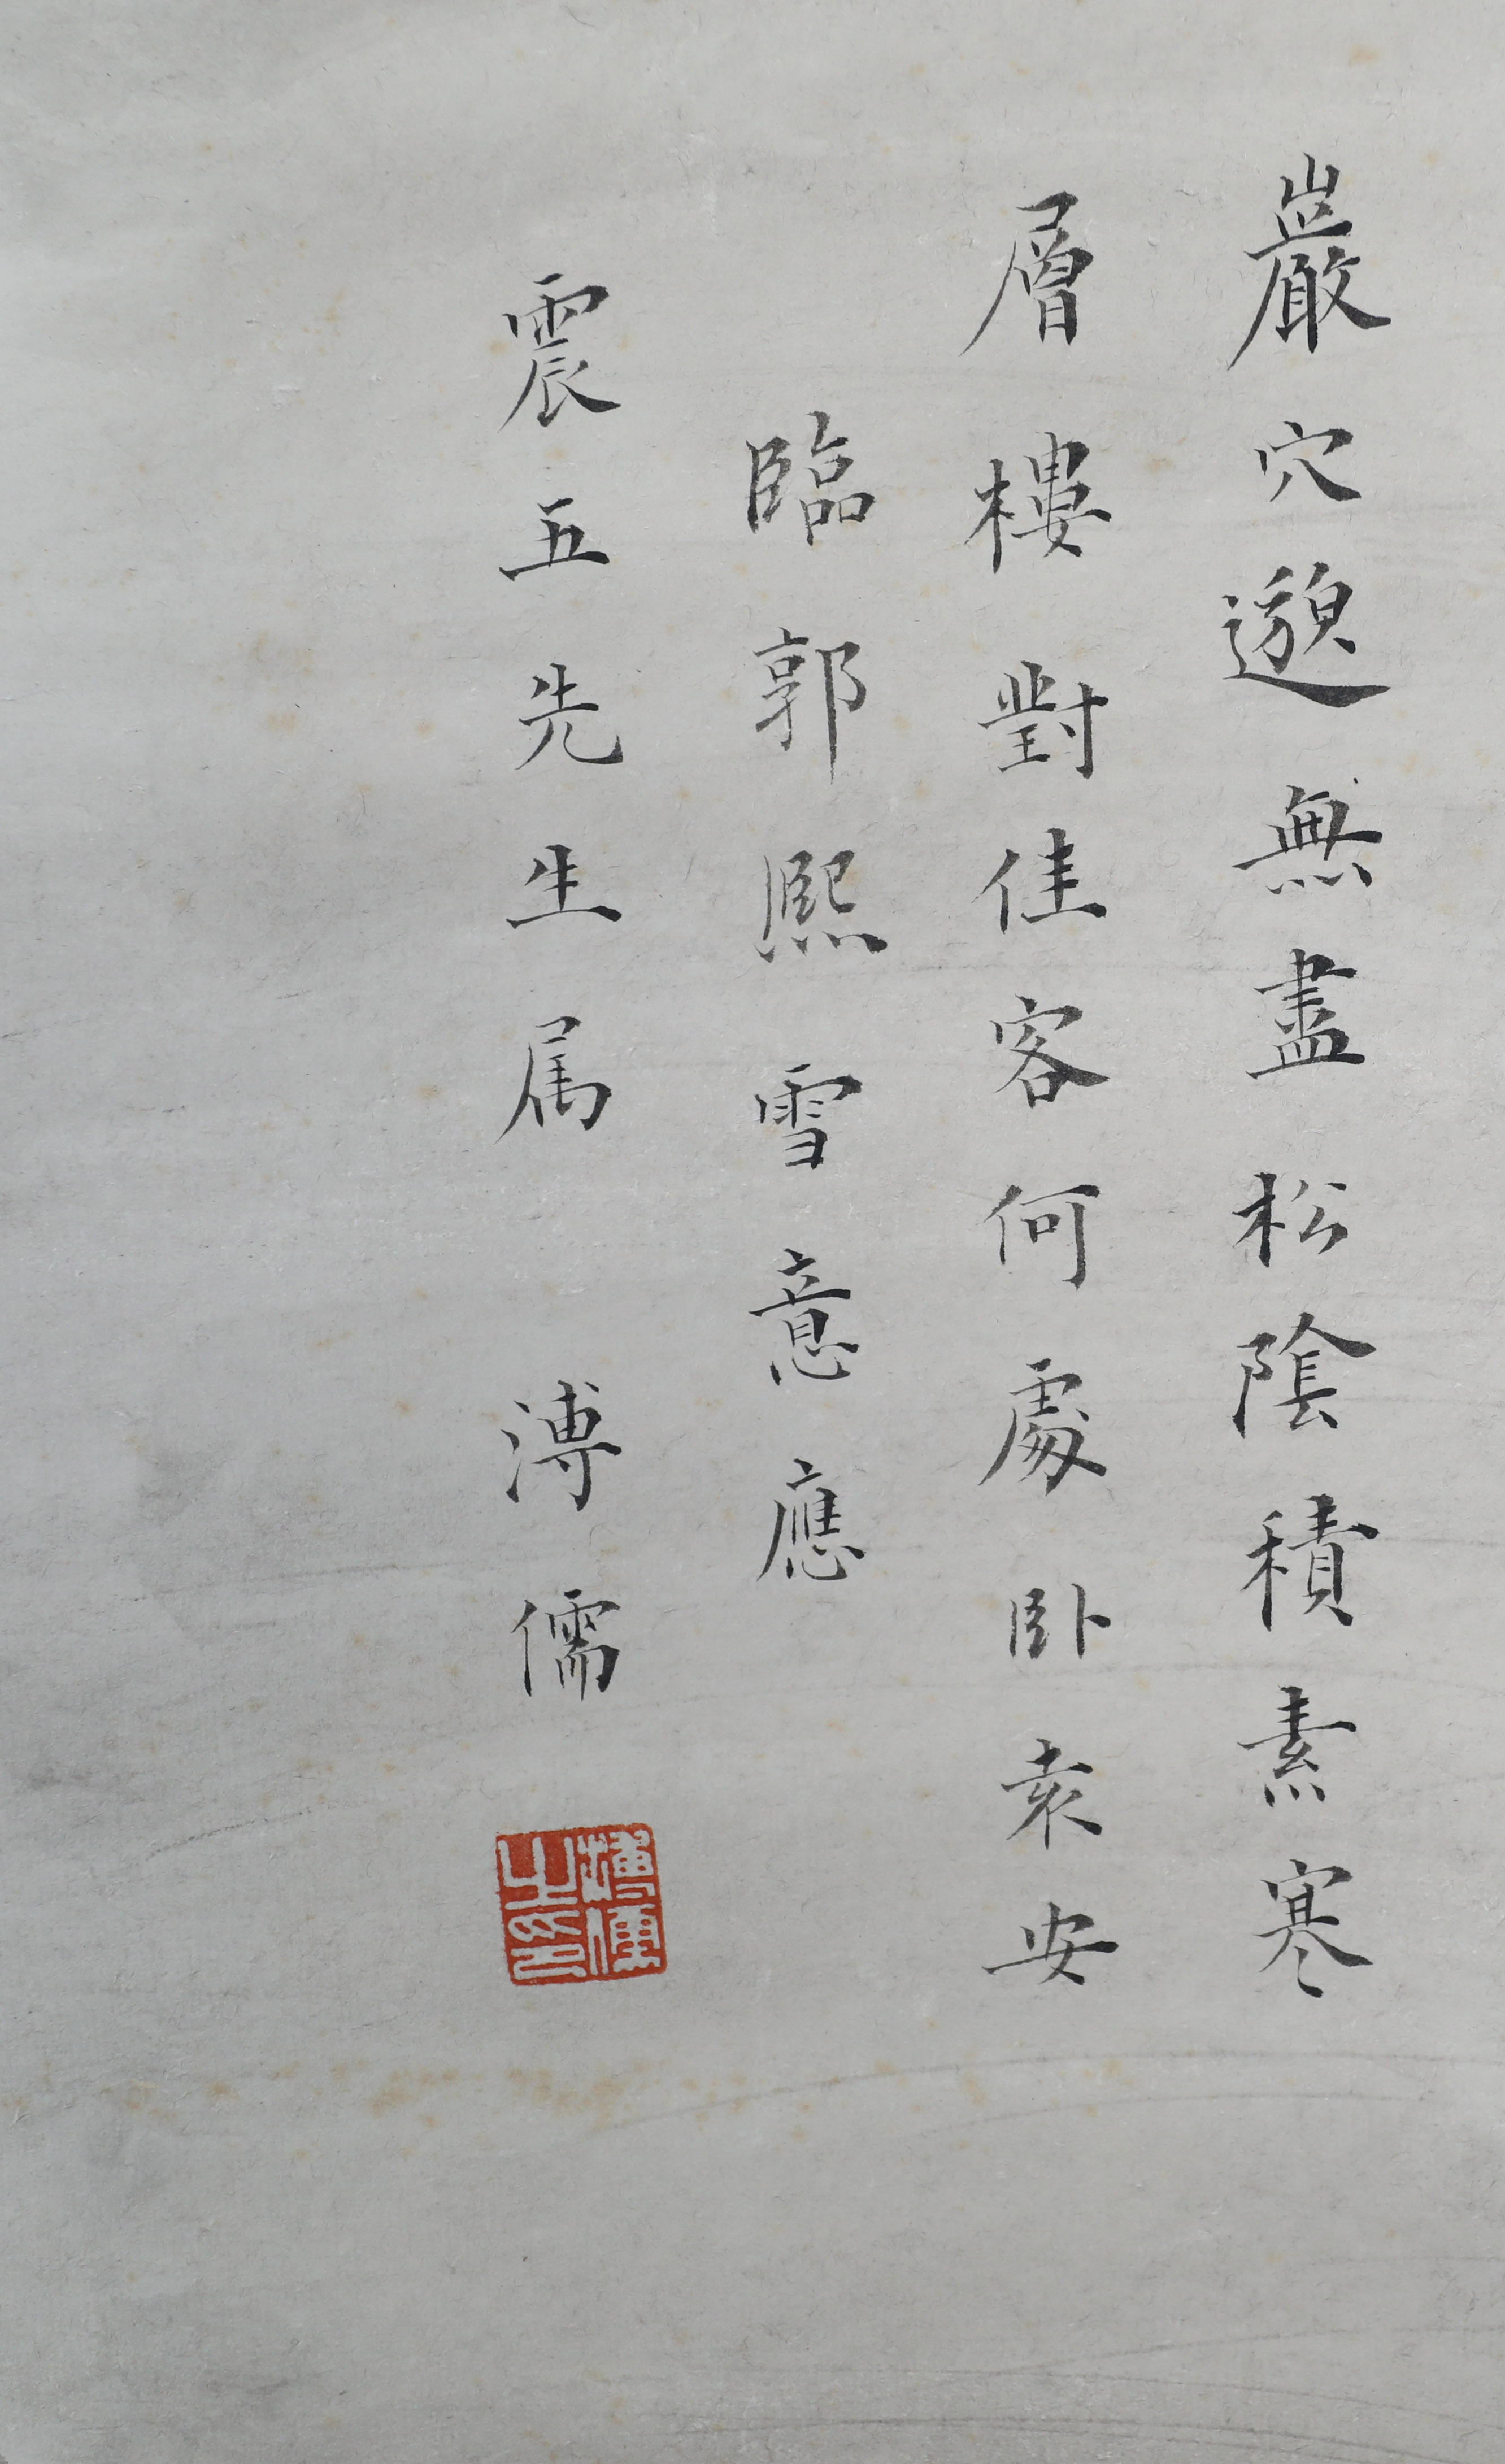 巖穴邈無盡松陰積素寒
層樓對佳客何處臥袁安
臨郭熙雪意應
震五先生属 溥儒
溥儒之印